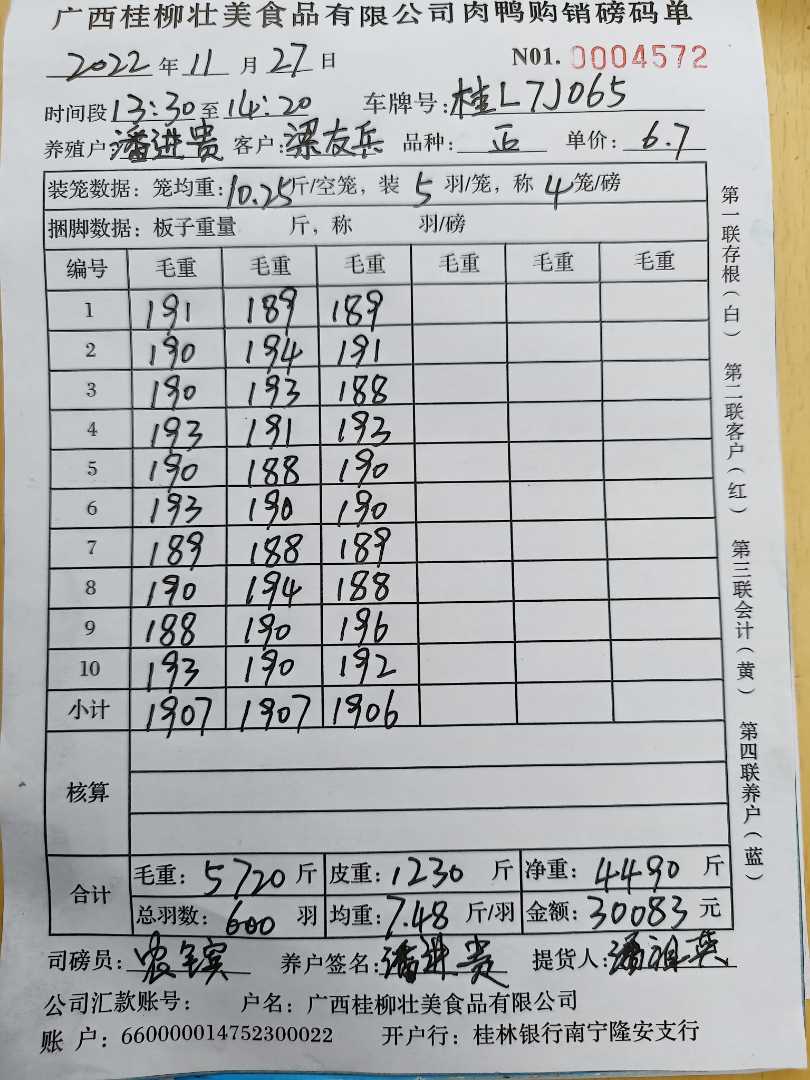 广西桂柳壮美食品有限公司肉鸭购销磅码单
2022 年 11 月 27 日 N01. 0004572
时间段 13:30 至 14:20 车牌号: 桂L7J065
养殖户: 潘进贵 客户: 梁友兵 品种: 正 单价: 6.7
装笼数据: 笼均重: 10.25 斤/空笼, 装 5 羽/笼, 称 4 笼/磅
捆脚数据: 板子重量 斤, 称 羽/磅
编号 毛重 毛重 毛重 毛重 毛重 毛重
1 191 189 189
2 190 194 191
3 190 193 188
4 193 191 193
5 190 188 190
6 193 190 190
7 189 188 189
8 190 194 188
9 188 190 196
10 193 190 192
小计 1907 1907 1906
核算
合计
毛重: 5720 斤 皮重: 1230 斤 净重: 4490 斤
总羽数: 600 羽 均重: 7.48 斤/羽 金额: 30083 元
司磅员: 农 养户签名: 潘进贵 提货人: 潘祖兵
公司汇款账号: 户名: 广西桂柳壮美食品有限公司
账 户: 660000014752300022 开户行: 桂林银行南宁隆安支行
第一联存根(白) 第二联客户(红) 第三联会计(黄) 第四联养户(蓝)